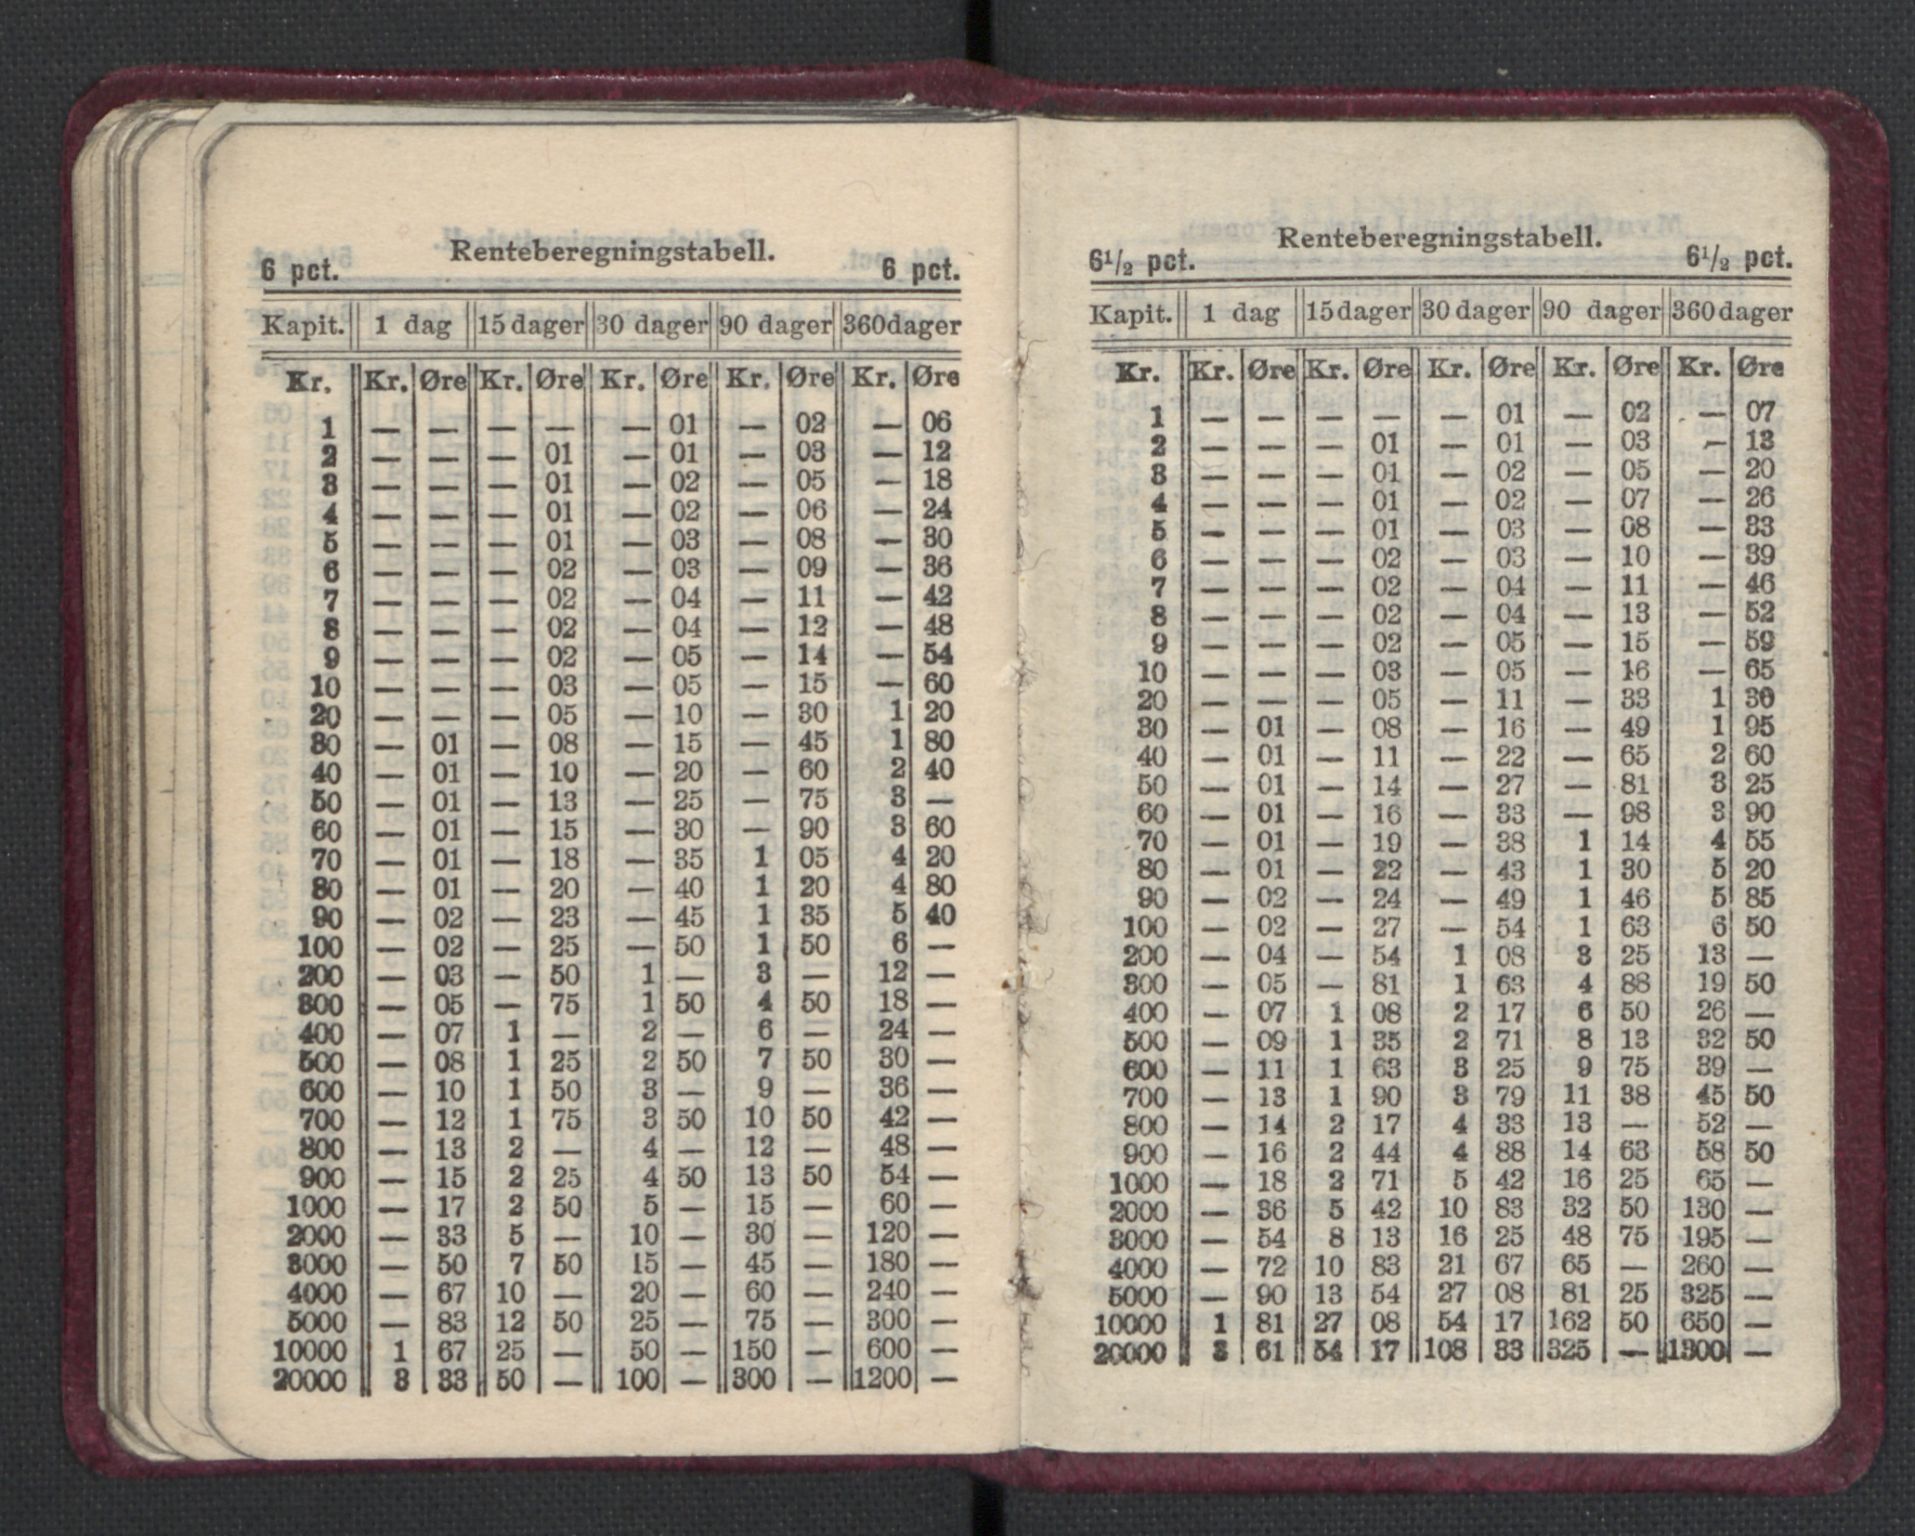 Renteberegningstabell.
6 pct. 6 pct.
Kapit. 1 dag 15 dager 30 dager 90 dager 360 dager
Kr. Kr. Øre Kr. Øre Kr. Øre Kr. Øre Kr. Øre
1 — — — — — 01 — 02 — 06
2 — — — 01 — 01 — 03 — 12
3 — — — 01 — 02 — 05 — 18
4 — — — 01 — 02 — 06 — 24
5 — — — 01 — 03 — 08 — 30
6 — — — 02 — 03 — 09 — 36
7 — — — 02 — 04 — 11 — 42
8 — — — 02 — 04 — 12 — 48
9 — — — 02 — 05 — 14 — 54
10 — — — 03 — 05 — 15 — 60
20 — — — 05 — 10 — 30 1 20
30 — 01 — 08 — 15 — 45 1 80
40 — 01 — 10 — 20 — 60 2 40
50 — 01 — 13 — 25 — 75 3 —
60 — 01 — 15 — 30 — 90 3 60
70 — 01 — 18 — 35 1 05 4 20
80 — 01 — 20 — 40 1 20 4 80
90 — 02 — 23 — 45 1 35 5 40
100 — 02 — 25 — 50 1 50 6 —
200 — 03 — 50 1 — 3 — 12 —
300 — 05 — 75 1 50 4 50 18 —
400 — 07 1 — 2 — 6 — 24 —
500 — 08 1 25 2 50 7 50 30 —
600 — 10 1 50 3 — 9 — 36 —
700 — 12 1 75 3 50 10 50 42 —
800 — 13 2 — 4 — 12 — 48 —
900 — 15 2 25 4 50 13 50 54 —
1000 — 17 2 50 5 — 15 — 60 —
2000 — 33 5 — 10 — 30 — 120 —
3000 — 50 7 50 15 — 45 — 180 —
4000 — 67 10 — 20 — 60 — 240 —
5000 — 83 12 50 25 — 75 — 300 —
10000 1 67 25 — 50 — 150 — 600 —
20000 3 33 50 — 100 — 300 — 1200 —
Renteberegningstabell.
6½ pct. 6½ pct.
Kapit. 1 dag 15 dager 30 dager 90 dager 360 dager
Kr. Kr. Øre Kr. Øre Kr. Øre Kr. Øre Kr. Øre
1 — — — — — 01 — 02 — 07
2 — — — 01 — 01 — 03 — 13
3 — — — 01 — 02 — 05 — 20
4 — — — 01 — 02 — 07 — 26
5 — — — 01 — 03 — 08 — 33
6 — — — 02 — 03 — 10 — 39
7 — — — 02 — 04 — 11 — 46
8 — — — 02 — 04 — 13 — 52
9 — — — 02 — 05 — 15 — 59
10 — — — 03 — 05 — 16 — 65
20 — — — 05 — 11 — 33 1 30
30 — 01 — 08 — 16 — 49 1 95
40 — 01 — 11 — 22 — 65 2 60
50 — 01 — 14 — 27 — 81 3 25
60 — 01 — 16 — 33 — 98 3 90
70 — 01 — 19 — 38 1 14 4 55
80 — 01 — 22 — 43 1 30 5 20
90 — 02 — 24 — 49 1 46 5 85
100 — 02 — 27 — 54 1 63 6 50
200 — 04 — 54 1 08 3 25 13 —
300 — 05 — 81 1 63 4 88 19 50
400 — 07 1 08 2 17 6 50 26 —
500 — 09 1 35 2 71 8 13 32 50
600 — 11 1 63 3 25 9 75 39 —
700 — 13 1 90 3 79 11 38 45 50
800 — 14 2 17 4 33 13 — 52 —
900 — 16 2 44 4 88 14 63 58 50
1000 — 18 2 71 5 42 16 25 65 —
2000 — 36 5 42 10 83 32 50 130 —
3000 — 54 8 13 16 25 48 75 195 —
4000 — 72 10 83 21 67 65 — 260 —
5000 — 90 13 54 27 08 81 25 325 —
10000 1 81 27 08 54 17 162 50 650 —
20000 3 61 54 17 108 33 325 — 1300 —